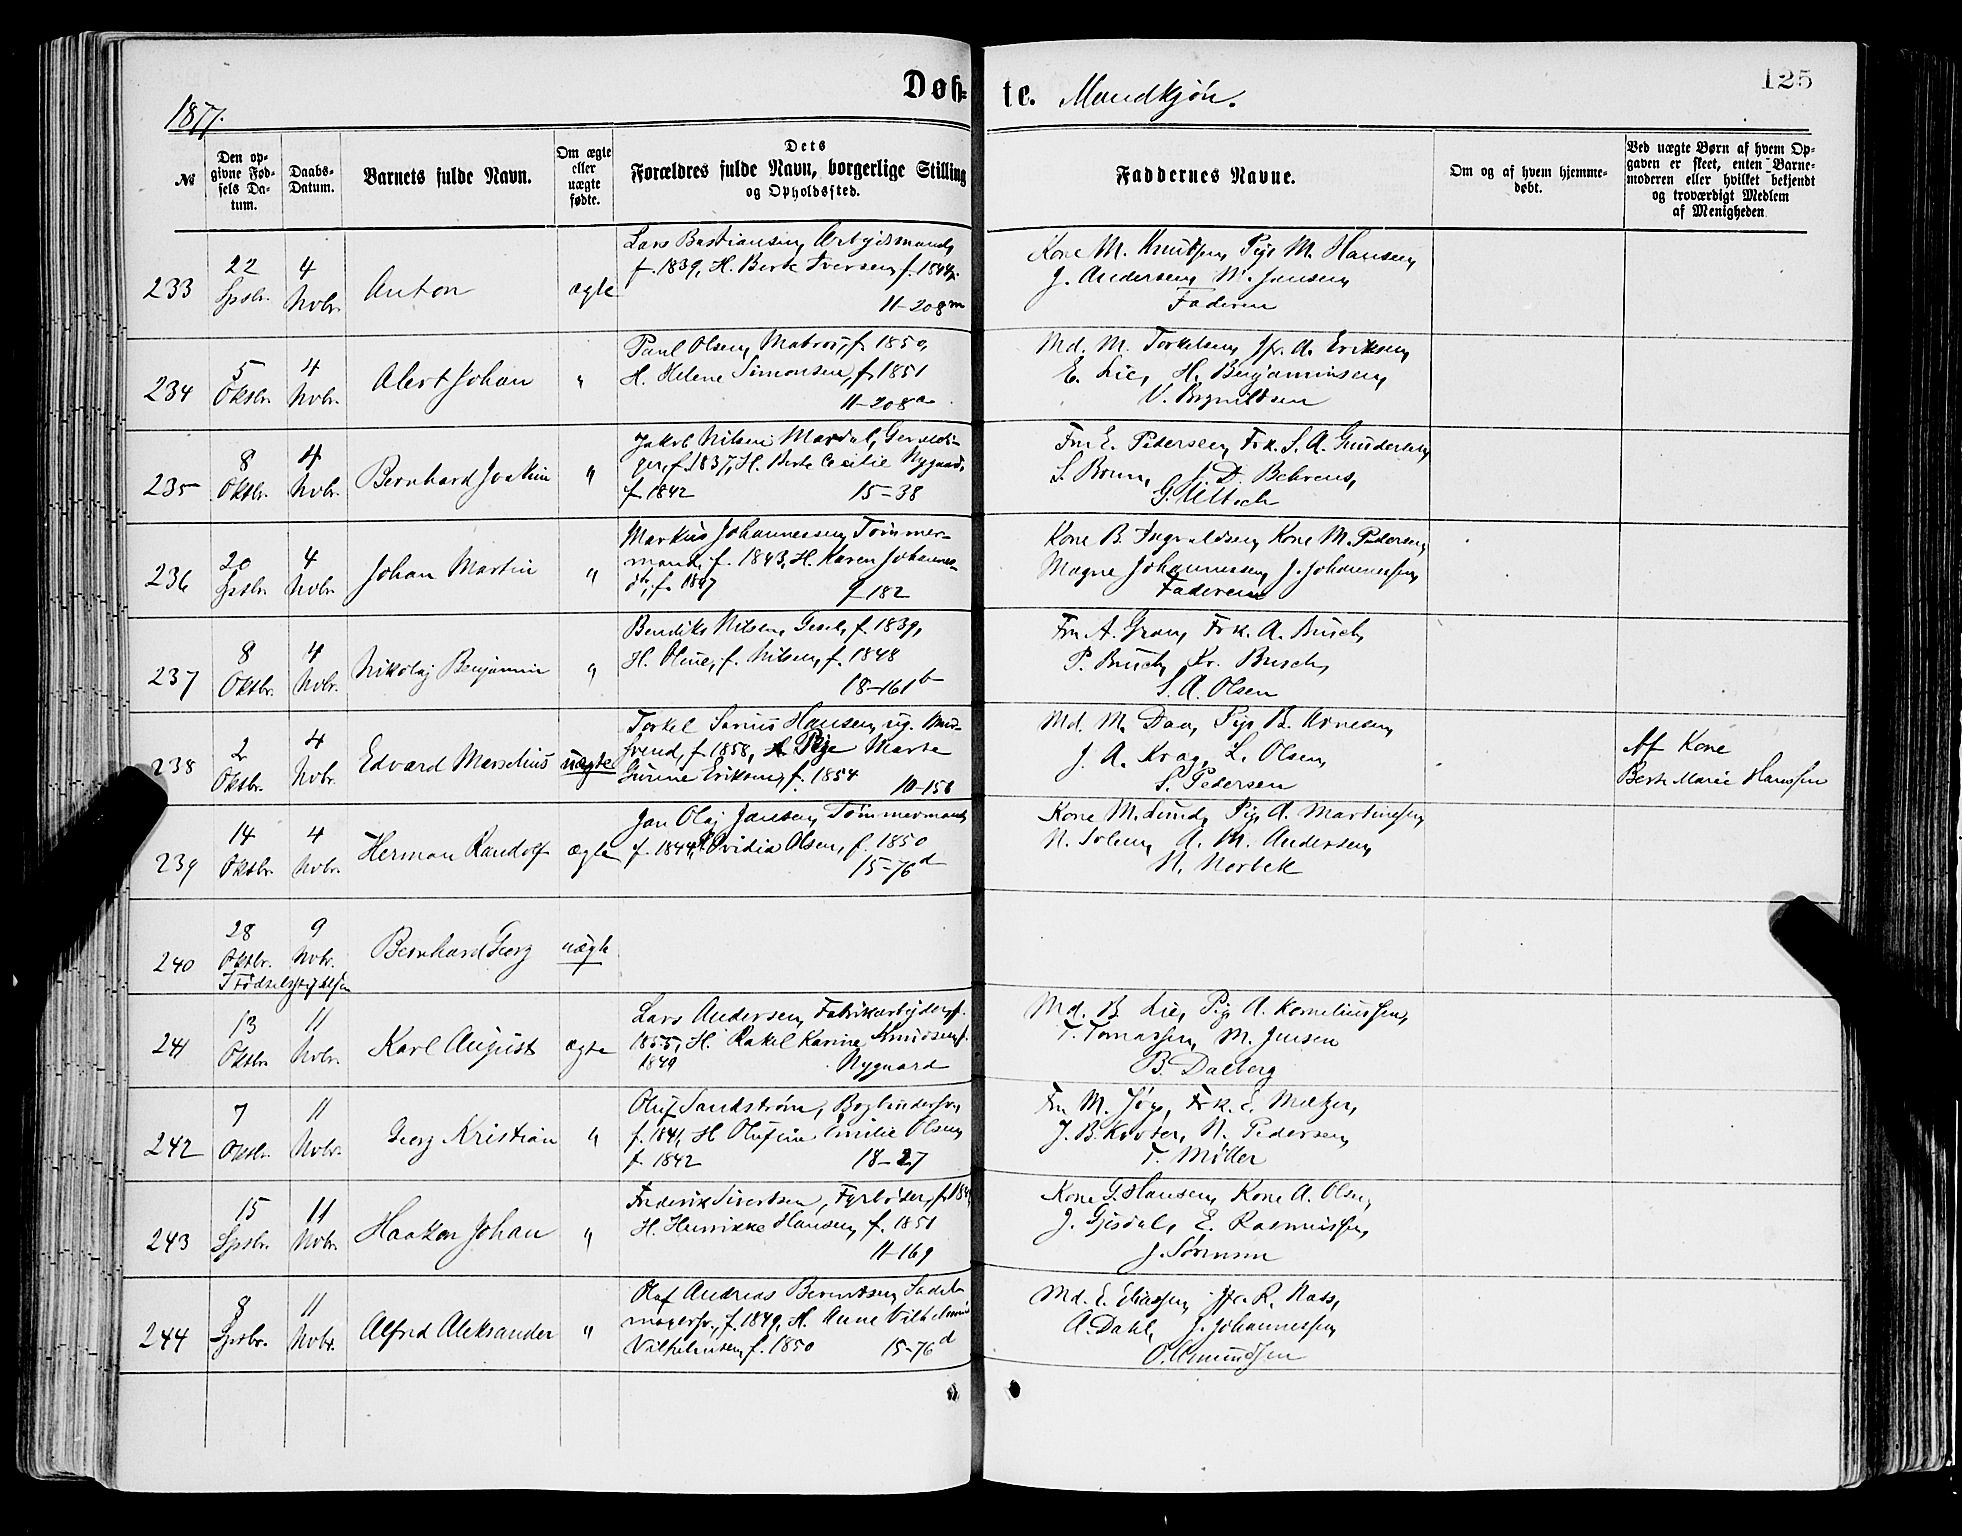 1877.
Døb-
te. Mandkjøn.
125
№
Den op-
givne Fød-
sels Da-
tum.
Daabs-
Datum.
Barnets fulde Navn.
Om ægte
eller
uægte
fødte.
Dets
Forældres fulde Navn, borgerlige Stilling
og Opholdssted.
Faddernes Navne.
Om og af hvem hjemme-
døbt.
Ved uægte Børn af hvem Op-
gaven er skeet, enten Barne-
moderen eller hvilket bekjendt
og troværdigt Medlem
af Menigheden
233
22
Spsbr.
4
Nvbr.
Anton
ægte
Lars Bastiansen, Arbejdsmand,
f. 1839, H. Berte Iversen, f. 1844,
11-208m
Kone M. Knutsen, Pige M. Hansen,
J. Andersen, N. Jansen,
Faderen
234
5
Oktbr.
4
Nvbr.
Alert Johan
"
Paul Olsen, Matros, f. 1850,
H. Helene Simonsen, f. 1851
11-208a
Md. M. Torkelsen, Jfr. A. Eriksen,
E. Lie, H. Benjaminsen,
V. Brynildsen
235
8
Oktbr.
4
Nvbr.
Bernhard Joakim
"
Jakob Nilsen Mardal,
f. 1837, H. Berte Cecilie Nygaard,
f. 1842 15-38
Fru E. Pedersen, Frk. S. A. Gundersen,
S. Brun, J. D. Behrens,
G. Ultsch
236
20
Spsbr.
4
Nvbr.
Johan Martin
"
Markus Johannessen, Tømmer-
mand, f. 1843, H. Karen Johannes-
dtr, f. 1847 9-182
Kone B. Ingvaldsen, Kone M. Pedersen,
Magne Johannessen, J. Johannessen,
Faderen
237
8
Oktbr.
4
Nvbr.
Nikolaj Benjamin
"
Bendiks Nilsen, Gesel, f. 1839,
H. Oline, f. Nilsen, f. 1848
18-161b
Fru A. Gran, Frk. A. Busch,
P. Busch, Kr. Busch,
S. A. Olsen
238
2
Oktbr.
4
Nvbr.
Edvard Marselius
uægte
Torkel Sarius Hansen, ug. Mur-
svend, f. 1858, Pige Marte
Gurine Eriksen, f. 1854 10-156
Md. M. Daa, Pige B. Arnesen,
J. A. Krag, L. Olsen,
S. Pedersen
Af Kone
Berte Marie Hanssen
239
14
Oktbr.
4
Nvbr.
Herman Randolf
ægte
Jan Olaj Jansen, Tømmermand,
f. 1844, H. Ovidia Olsen, f. 1850
15-76d
Kone M. Lund, Pige A. Martinsen,
N. Solem, A. M. Andersen,
N. Norbek
240
28
Oktbr.
9
Nvbr.
I Fødselsstiftelsen
Bernhard Georg
uægte
241
13
Oktbr.
11
Nvbr.
Karl August
ægte
Lars Andersen, Fabrikarbejder, f.
1855, H. Rakel Karine Knudsen, f.
1849 Nygaard
Md. B. Lie, Pige A. Korneliussen,
T. Tomassen, M. Jensen
B. Dalberg
242
7
Oktbr.
11
Nvbr.
Georg Kristian
"
Oluf Sandstrøm, Bogbindersv.,
f. 1841, H Olufine Emilie Olsen,
f. 1842 18-27
Fru M. Jøys, Frk. E. Metzer,
J. B. Kroter, N. Pedersen,
T. Møller
243
15
Spsbr.
11
Nvbr.
Haakon Johan
"
Frederik Sivertsen, Fyrbøder,
H. Henrikke Hansen, f. 1851
11-169
Kone G. Hansen, Kone A. Olsen,
J. Gjesdal, E. Rasmussen,
J. Sørensen
244
8
Spsbr.
11
Nvbr.
Alfred Aleksander
"
Olaf Andreas Berentsen, Sadel-
magersv., f. 1849, H. Anne Vilhelmine
Vilhelmsen, f. 1850 15-76d
Md. E. Eliassen, Jfr. R. Næss,
A. Dahl, J. Johannessen,
O. Amundsen